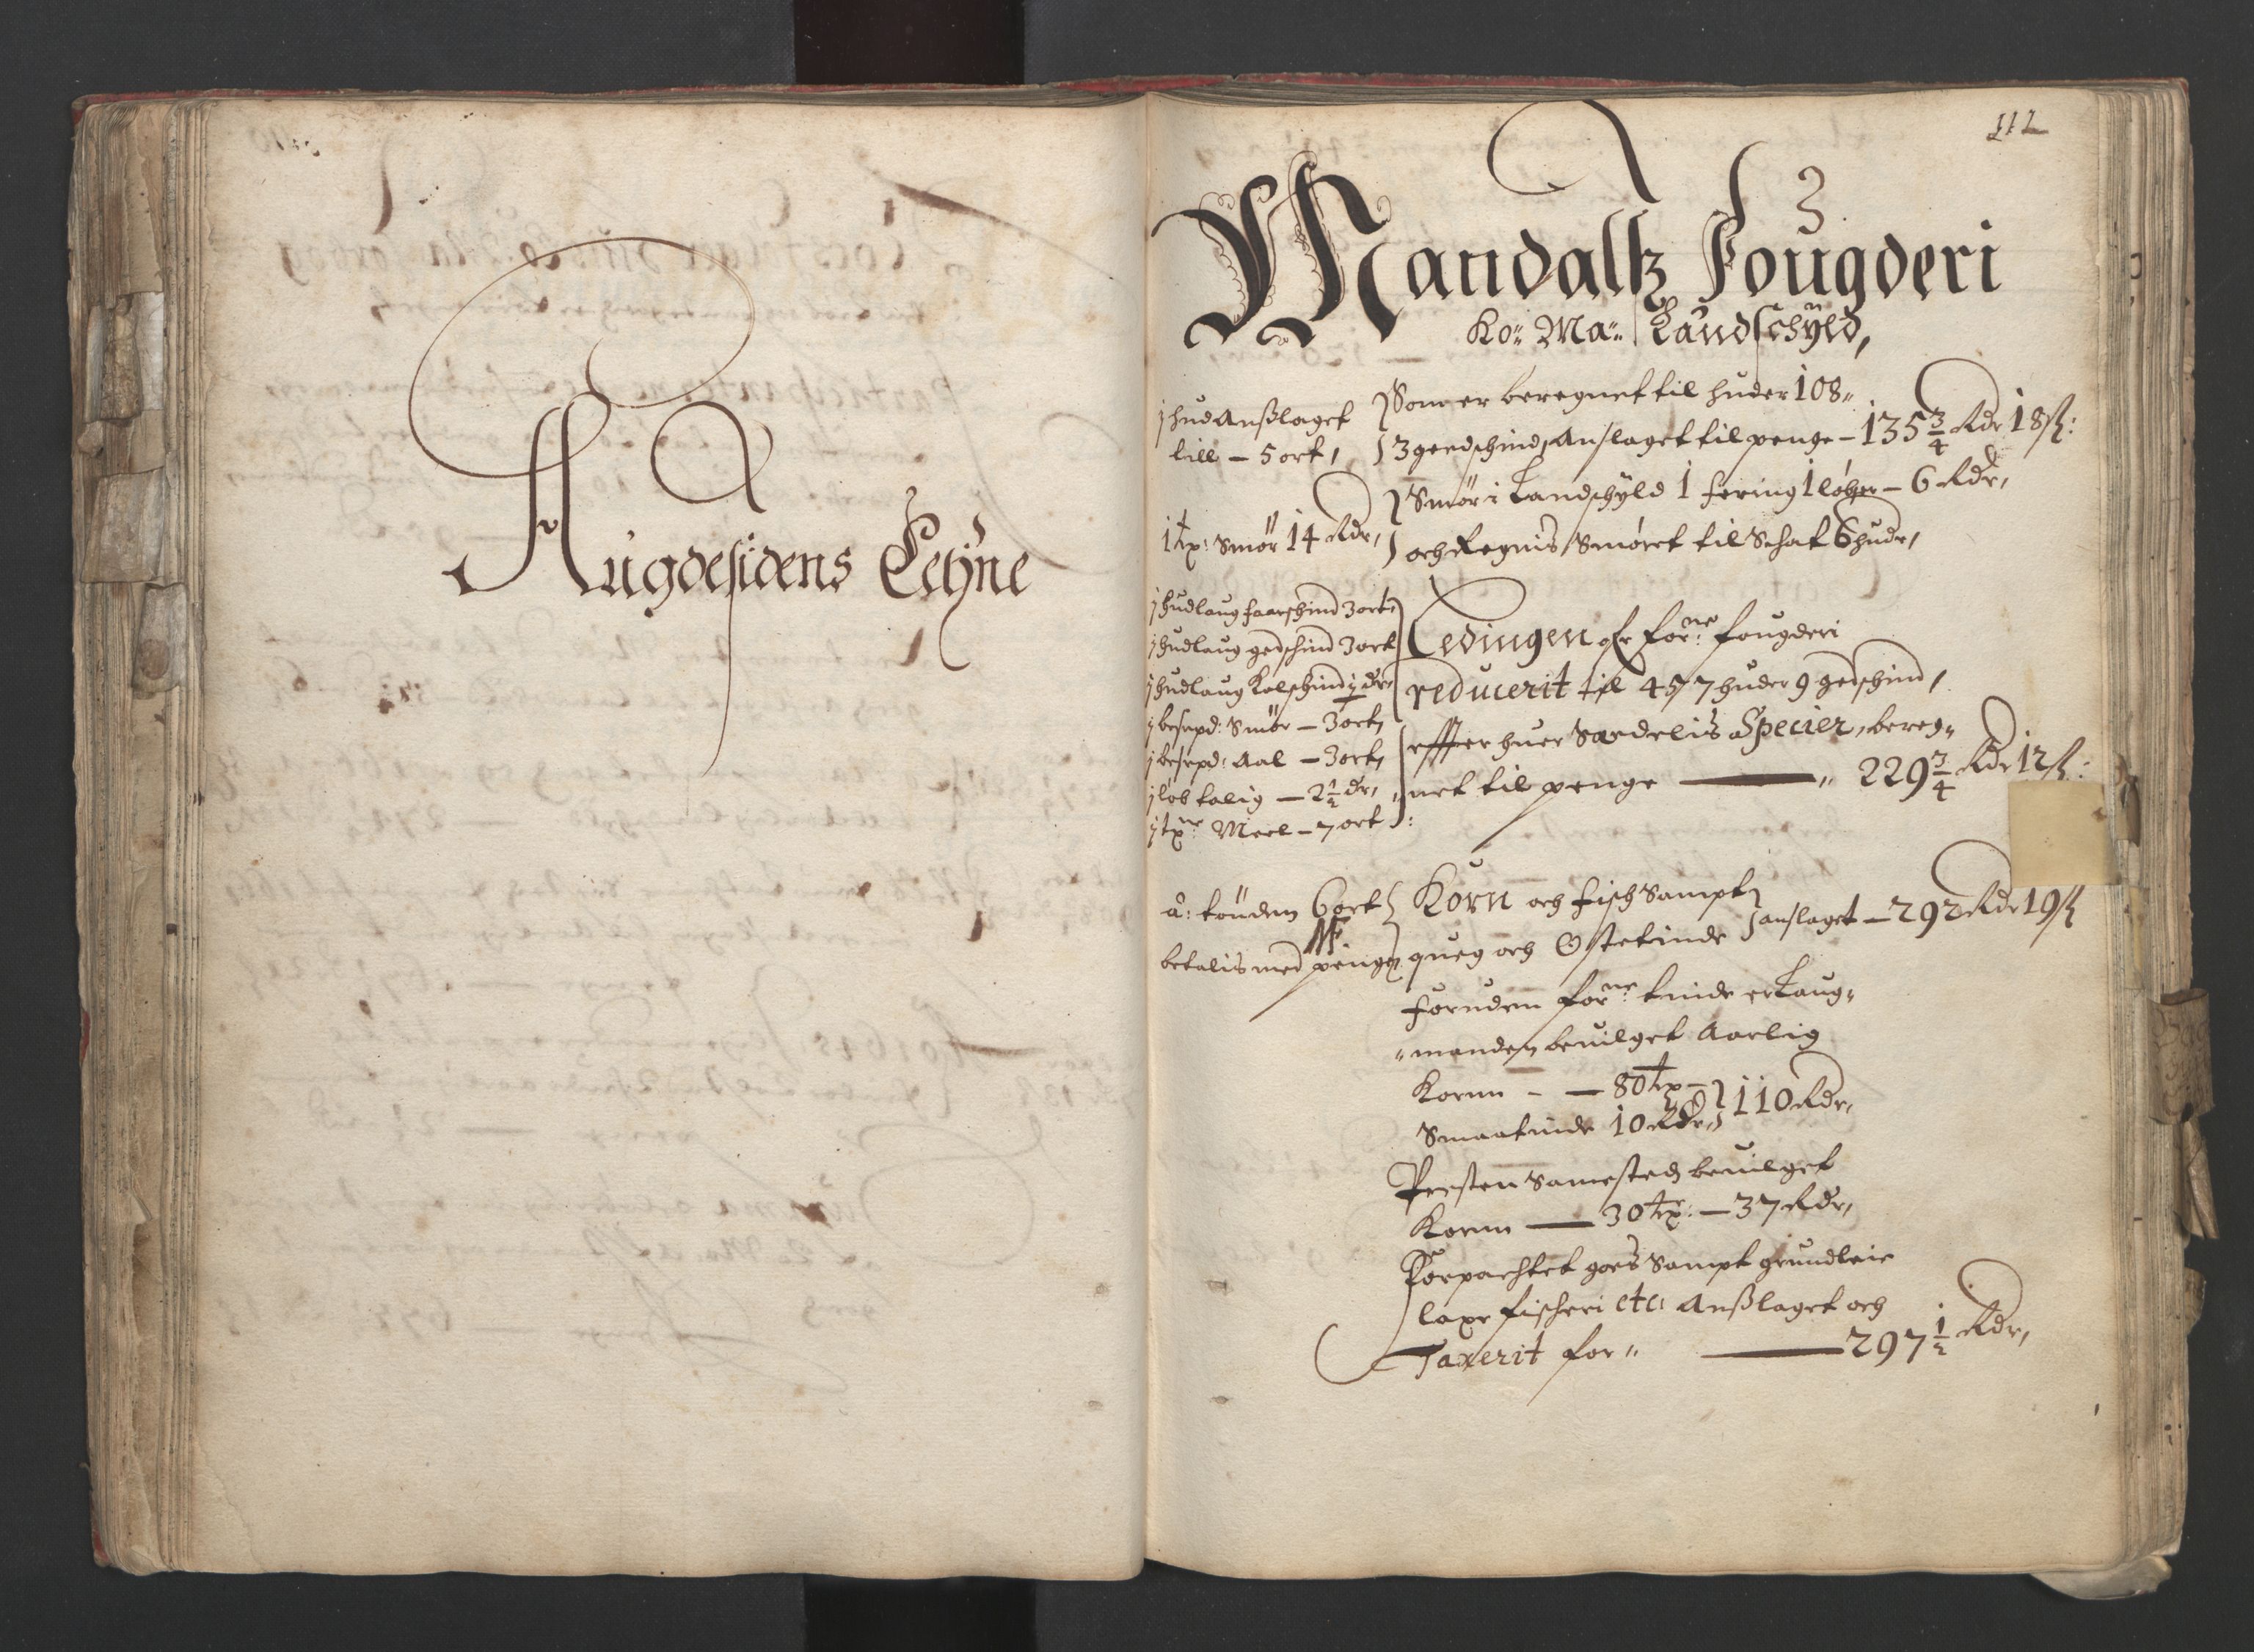 Augdesidens Lehne
112
Mandaltz Fougderi
Ko:: Ma:: Landschyld,
j hud Anßlaget
till – 5 ort,
Som er beregnet til huder 108
3 geedschind, Anslaget til penge – 135 3/4 Rdr 18 ß:
1 tp: Smør 14 Rdr,
Smør i Landschyld 1 fering 1 løber – 6 Rdr,
och Regnis Smøret til Schat 6 hudr,
j hudlaug faarschind 3 ort,
j hudlaug gedschind 3 ort
j hudlaug Kalfschind j dr,
j besmpd: Smør – 3 ort,
j besmpd: Aal – 3 ort,
j løb talig – 2 1/2 dr,
j tp Meel – 7 ort
Ledingen af forne: fougderi
reducerit til 457 huder 9 gedschind,
effter huer Serdelis Specier, bereg"
"net til penge — " 229 3/4 Rdr 12 ß:
â: tønden 6 ort
betalis med penge
Korn och fisch Sampt
queg och Ostetinde
anslaget – 292 Rdr 19 ß
foruden forne: tinde er Laug"
"manden beuilget Aarlig
Kornn – – 80 tp –
Smaatinde 10 Rdr,
110 Rdr,
Presten Samested beuilget
Kornn — 30 tp: – 37 Rdr,
Forpachtet goes Sampt grundleie
laxe fischeri etc: Anßlaget och
Taxerit for" — 297 1/2 Rdr,